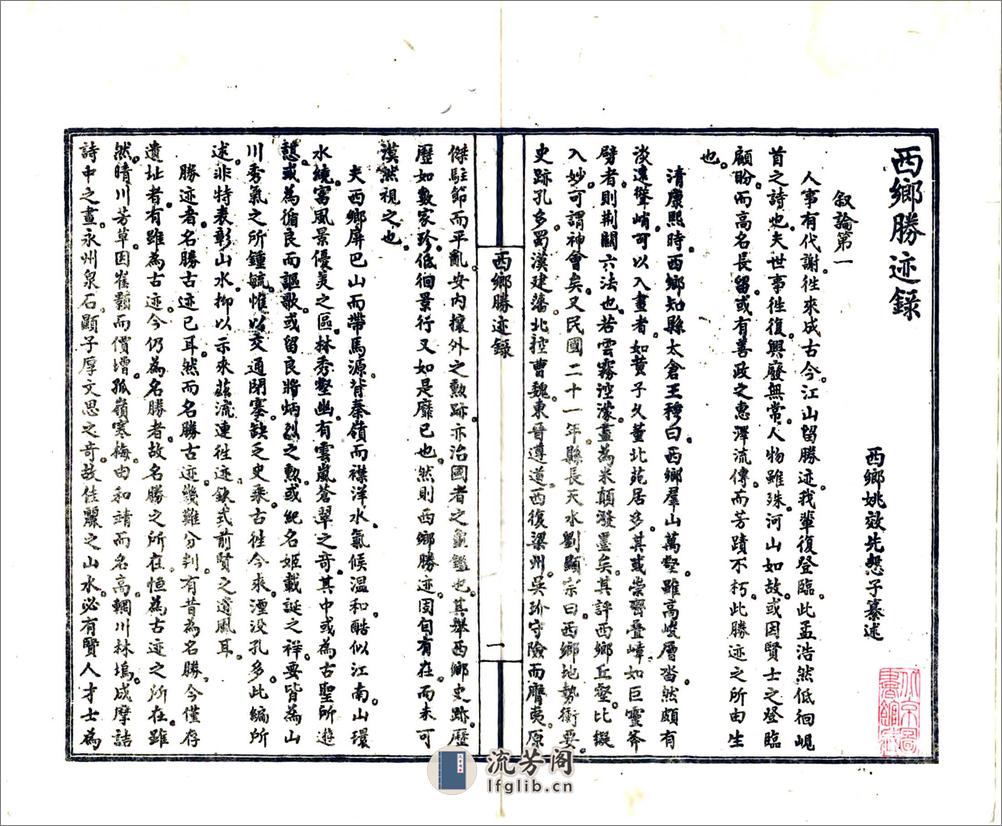 西鄉勝迹錄
西鄉姚效先恕子纂述
叙論第一
人事有代謝往來成古今江山留勝迹我輩復登臨此孟浩然低徊峴
首之詩也夫世事徃復興廢無常人物雖殊河山如故或因賢士之登臨
顧盼而高名長留或有善政之惠澤流傳而芳蹟不朽此勝迹之所由生
也
清康熙時西鄉知縣太倉王穆曰西鄉羣山萬壑雖高峻層沓然頗有
淡遠聳峭可以入畫者如黄子久董北苑居多其或崇巒疊嶂如巨靈斧
劈者則荆關六法也若雲霧涳濛盡為米顛潑墨矣其評西鄉丘壑比擬
入妙可謂神會矣又民國二十一年縣長天水劉顯宗曰西鄉地勢衝要
史跡孔多蜀漢建藩北控曹魏東晉遵道西復梁州吳玠守險而膺夷原
傑駐節而平亂安内攘外之勲跡亦治國者之龜鑑也其舉西鄉史跡歷
歷如數家珍低徊景行又如是靡已也然則西鄉勝迹固自有在而未可
漠然視之也
夫西鄉屏巴山而帶馬源背秦嶺而襟洋水氣候温和酷似江南山環
水繞富風景優美之區林秀壑幽有雲嵐蒼翠之奇其中或為古聖所遊
憩或為循良而謳歌或留良將炳烈之勲或紀名姬載誕之祥要皆為山
川秀氣之所鍾毓惟以交通閉塞缺乏史乘古徃今來湮没孔多此編所
述非特表彰山水抑以示來茲流連徃迹欽式前賢之遺風耳
勝迹者名勝古迹已耳然而名勝古迹幾難分判有昔為名勝今僅存
遺址者有雖為古迹今仍為名勝者故名勝之所在恒為古迹之所在雖
然晴川芳草因崔顥而價增孤嶺寒梅由和靖而名高輞川林塢成摩詰
詩中之畫永州泉石顯子厚文思之奇故佳麗之山水必有賢人才士為
西鄉勝迹錄
一
流芳阁
lfglib.cn